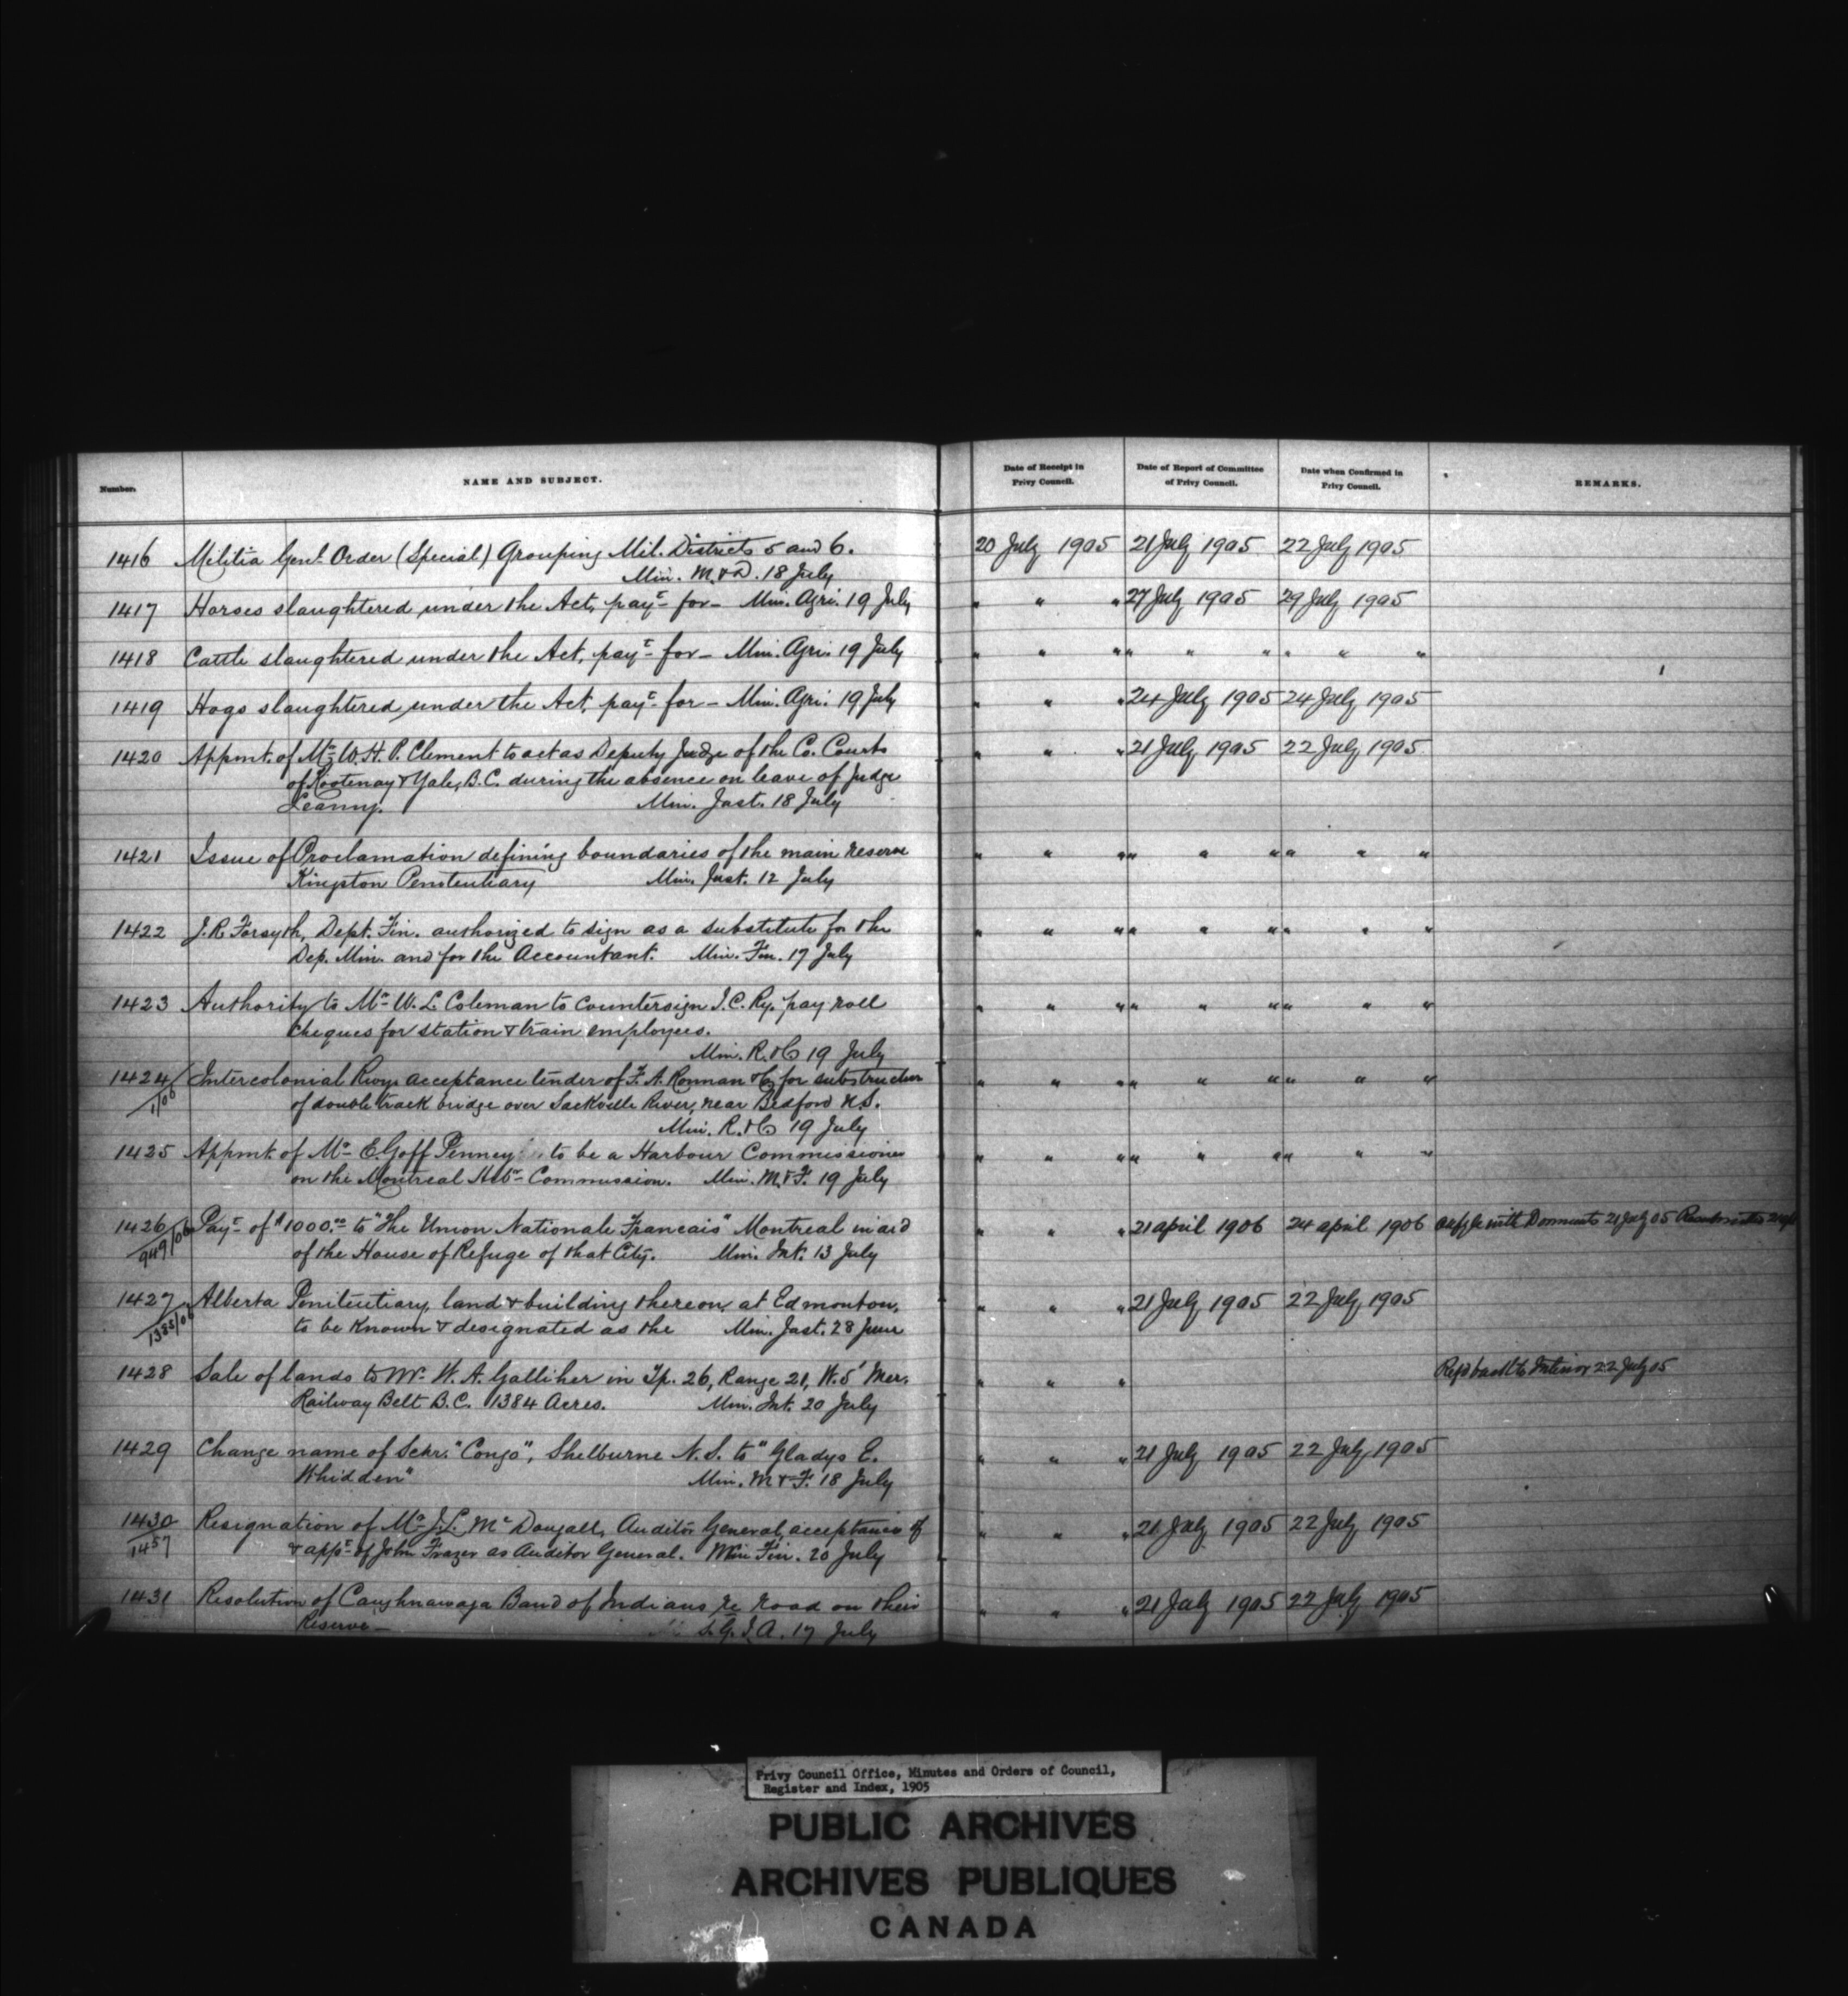 Number.
NAME AND SUBJECT.
Date of Receipt in Privy Council.
Date of Report of Committee of Privy Council.
Date when Confirmed in Privy Council.
REMARKS.
1416 Militia Genl. Order (Special) Grouping Mil. Districts 5 and 6. 20 July 1905 21 July 1905 22 July 1905
Min. M. & D. 18 July
1417 Horses slaughtered under the Act, payt. for - Min. Agri. 19 July " " " 27 July 1905 29 July 1905
1418 Cattle slaughtered under the Act, payt. for - Min. Agri. 19 July " " " " " " " " "
1419 Hogs slaughtered under the Act, payt. for - Min. Agri. 19 July " " " 24 July 1905 24 July 1905
1420 Appmt. of Mr. W. H. P. Clement to act as Deputy Judge of the Co. Courts " " " 21 July 1905 22 July 1905
of Kootenay & Yale, B.C. during the absence on leave of Judge
Leamy. Min. Just. 18 July
1421 Issue of Proclamation defining boundaries of the main reserve " " " " " " " " "
Kingston Penitentiary Min. Just. 12 July
1422 J. R. Forsyth, Dept. Fin. authorized to sign as a substitute for the " " " " " " " " "
Dep. Min. and for the Accountant. Min. Fin. 17 July
1423 Authority to Mr. W. L. Coleman to countersign I. C. Ry. pay roll " " " " " " " " "
cheques for station & train employees.
Min. R. & C 19 July
1424 1/06 Intercolonial Rwy. acceptance tender of F. A. Ronnan & Co for substructure " " " " " " " " "
of double track bridge over Sackville River, near Bedford N.S.
Min. R. & C 19 July
1425 Appmt. of Mr. E Goff Penney to be a Harbour Commissioner " " " " " " " " "
on the Montreal Hbr. Commission. Min. M. & F. 19 July
1426 949/06 Payt. of $1000.00 to "The Union Nationale Francais" Montreal in aid " " " 21 april 1906 24 april 1906 with Documents 21 July 05
of the House of Refuge of that City. Min. Int. 13 July
1427 1385/06 Alberta Penitentiary, land & building thereon, at Edmonton, " " " 21 July 1905 22 July 1905
to be known & designated as the Min. Just. 28 June
1428 Sale of lands to Mr. W. A. Galliher in Tp. 26, Range 21, W. 5' Mer. " " " Refd back to Interior 22 July 05
Railway Belt B.C. 1384 Acres. Min. Int. 20 July
1429 Change name of Schr. "Congo", Shelburne N.S. to "Gladys E. " " " 21 July 1905 22 July, 1905
Whidden" Min. M & F. 18 July
1430 1457 Resignation of Mr. J. L. McDougall, Auditor General, acceptance of " " " 21 July 1905 22 July 1905
& appt. of John Frazer as Auditor General. Min Fin. 20 July
1431 Resolution of Caughnawaga Band of Indians re road on their " " " 21 July 1905 22 July 1905
Reserve - S. G. I. A. 17 July
Privy Council Office, Minutes and Orders of Council,
Register and Index, 1905
PUBLIC ARCHIVES
ARCHIVES PUBLIQUES
CANADA